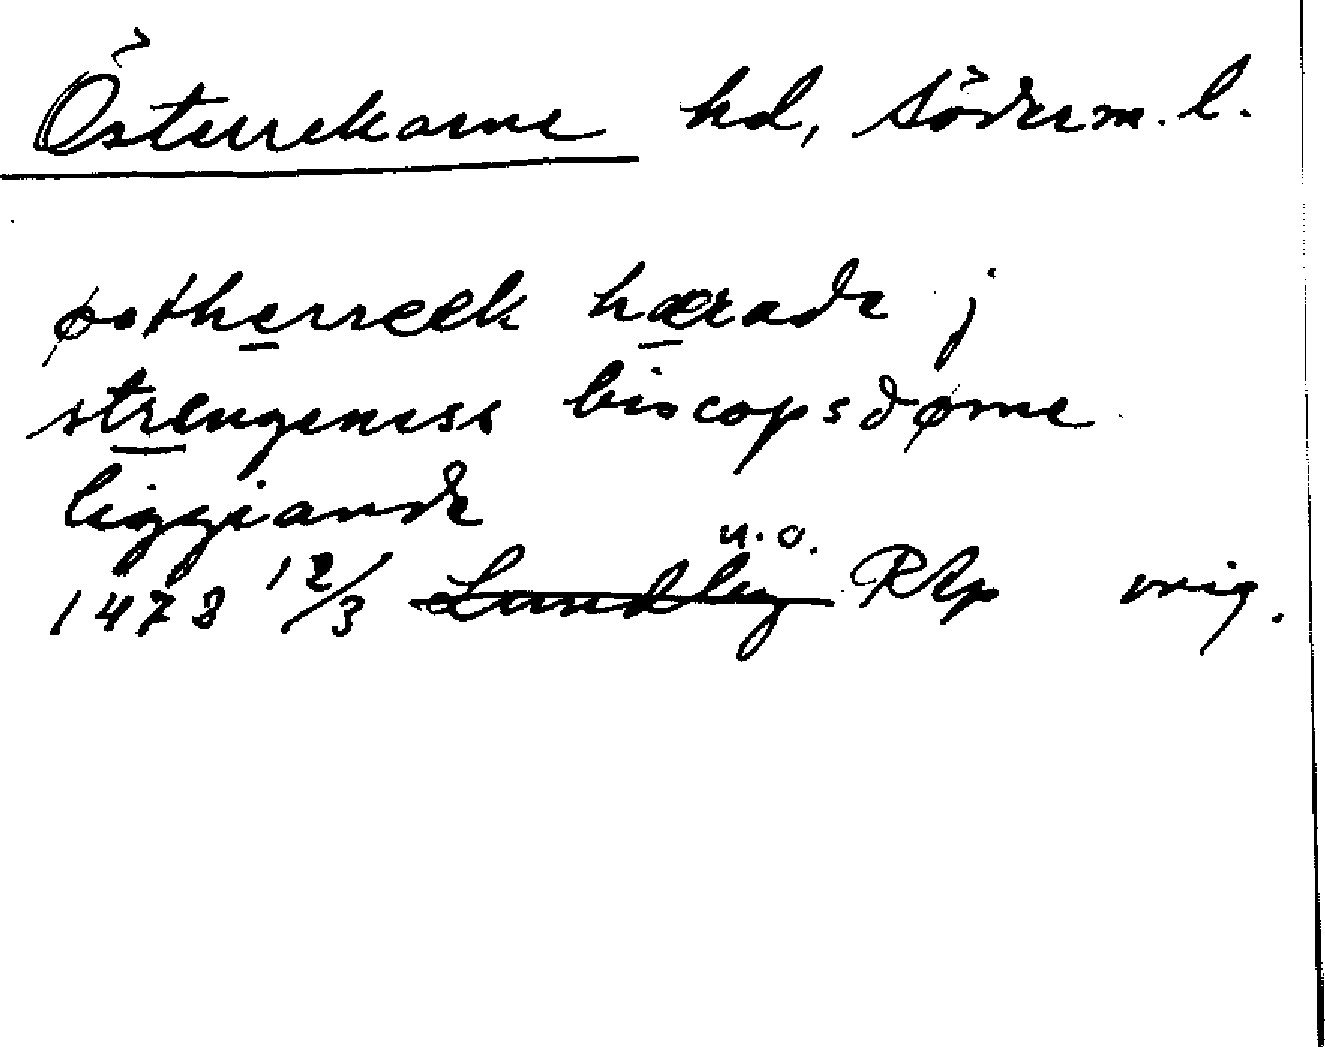 Österrekarne hd, Söderm. l.
østherreek hærade j
strengeness biscopsdøme
liggiande
u. o.
1473 12/3 Lundby RAp orig.